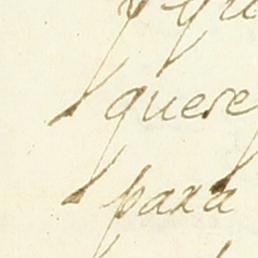 quere
para